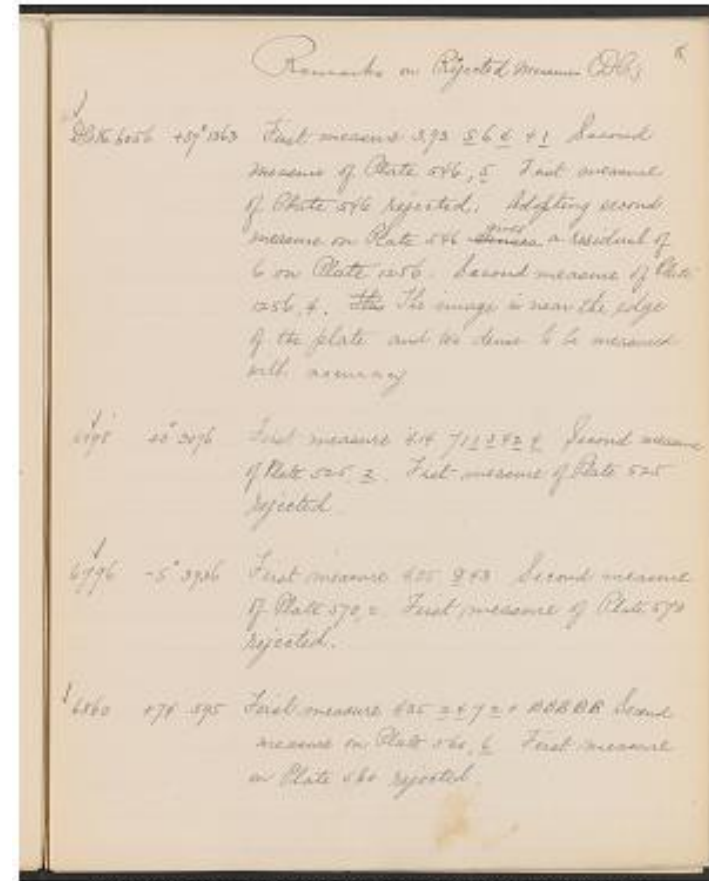 Remarks on Rejected Measures (DC)
First measure 3.93 5 6 4 4 1 Second
measure of Plate 546, 5 First measure
of Plate 546 rejected. Adopting second
measure on Plate 546 gives a residual of
6 on Plate 1256. Second measure of Plate
1256, 4. The image is near the edge
of the plate and too dense to be measured
with accuracy
First measure 4.14 Second measure
of Plate 525 2. First measure of Plate 525
rejected
6796 -5° First measure 9 4 3 Second measure
of Plate 570, 2. First measure of Plate 570
rejected.
6860 +74 595 First measure 2 4 7 2 Second
measure on Plate 560, 6 First measure
on Plate 560 rejected.